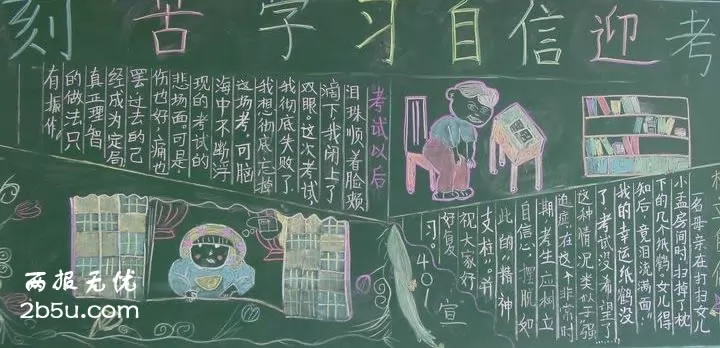 刻苦学习自信迎考
考试以后
泪珠顺着脸颊
滴下,我闭上了
双眼。这次考试,
我彻底失败了
我想彻底忘掉
这场考,可脑
海中不断浮
现的考试的
悲场面。可是,
伤也好,痛也
罢过去的已
经成为定局
真正理智
的做法,只
有振作。
一名母亲在打扫女儿
小孟房间时,扫掉了枕
下的几个纸鹤,女儿得
知后,竟泪流满面:"
我的幸运纸鹤没
了,考试没希望了"
这种情况类似于"强
迫症"在这个非常时
期考生应树立
自信心,摆脱如
此的"精神
支柱"。并
祝大家好
好复
习。401宣
两报无忧
2b5u.com